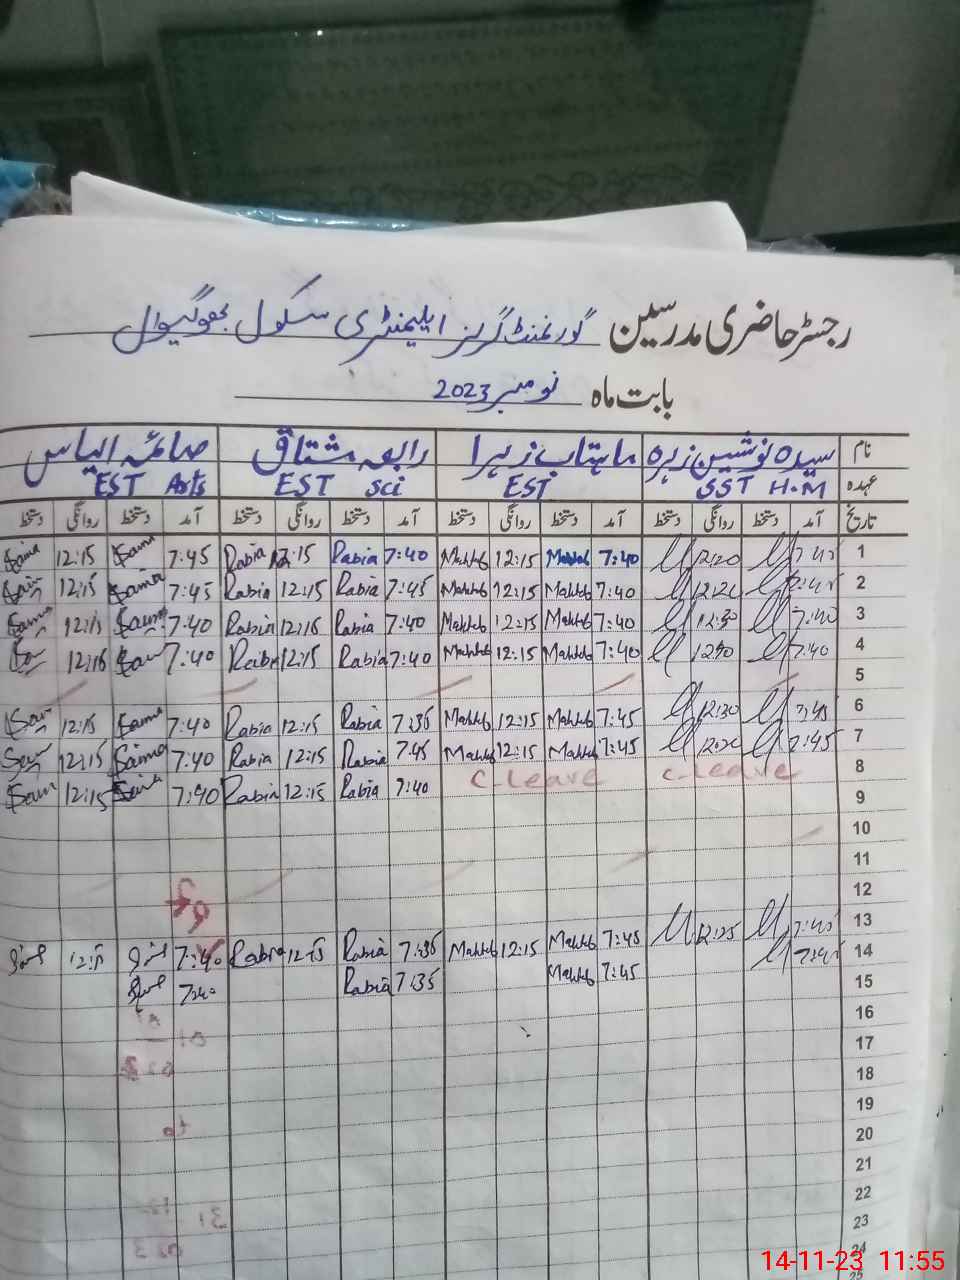 رجسٹر حاضری مدرسین گورنمنٹ گرلز ایلیمنٹری سکول بھوگیوال
بابت ماہ نومبر 2023
نام سیدہ نوشین زہرہ ماہتاب زہرا رابعہ مشتاق صائمہ الیاس
عہدہ SST H.M EST EST Sci EST Arts
تاریخ آمد دستخط روانگی دستخط آمد دستخط روانگی دستخط آمد دستخط روانگی دستخط آمد دستخط روانگی دستخط
1 7:45 12:20 7:40 Mahtab 12:15 Mahtab 7:40 Rabia 12:15 Rabia 7:45 Saima 12:15 Saima
2 7:40 Mahtab 12:15 Mahtab 7:45 Rabia 12:15 Rabia 7:45 Saima 12:15
3 7:40 12:30 7:40 Mahtab 12:15 Mahtab 7:40 Rabia 12:15 Rabia 7:40 Saima 12:15 Saima
4 7:40 7:40 Mahtab 12:15 Mahtab 7:40 Rabia 12:15 7:40 12:15
5
6 7:45 12:30 7:45 Mahtab 12:15 Mahtab 7:35 Rabia 12:15 Rabia 7:40 Saima 12:15
7 7:45 7:45 Mahtab 12:15 Mahtab 7:45 Rabia 12:15 Rabia 7:40 Saima 12:15
8 C-Leave C-Leave 7:40 Rabia 12:15 Rabia 7:40 12:15
9
10
11
12
13 7:45 12:25 7:45 Mahtab 12:15 Mahtab 7:35 Rabia 12:15 Rabia 7:40
14 7:45 7:45 Mahtab 7:35 Rabia 7:40
15
16
17
18
19
20
21
22
23
24
25
14-11-23 11:55